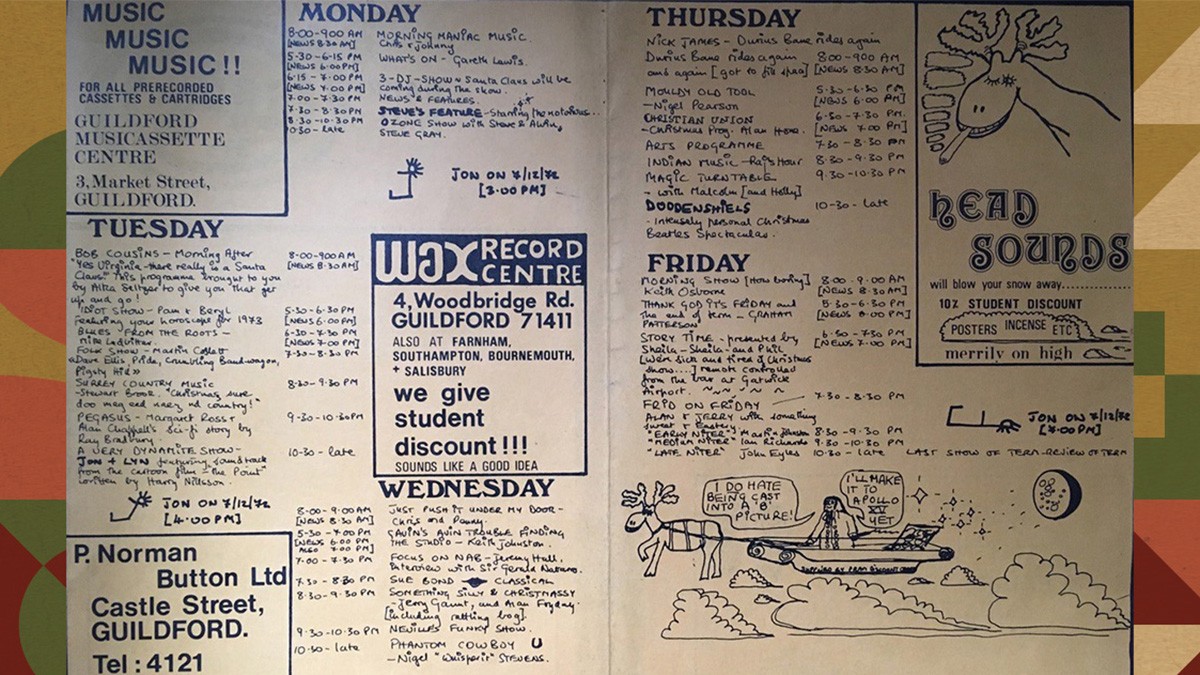 MUSIC
MUSIC
MUSIC!!
FOR ALL PRERECORDED
CASSETTES & CARTRIDGES
GUILDFORD
MUSICASSETTE
CENTRE
3, Market Street,
GUILDFORD.
MONDAY
8-00-9-00 AM MORNING MANIAC MUSIC.
[NEWS 8.30 AM] Chris & Johnny
5-30-6-15 PM WHAT'S ON - Gareth Lewis.
[NEWS 6.00PM]
6-15-7-00PM 3-DJ-SHOW - Santa Claus will be
[NEWS 7.00 PM] coming during the show.
7-00-7-30 PM NEWS & FEATURES.
7-30-8-30 PM STEVE'S FEATURE - Starring the notorious...
8-30-10-30 PM OZONE SHOW with Steve &
10-30-late STEVE GRAY.
JON ON 7/12/72
[3-00 PM]
TUESDAY
BOB COUSINS - Morning After 8-00-9-00 AM
"Yes Virginia there really is a Santa [NEWS 8-30AM]
Claus" This programme brought to you
by Alka Seltzer to give you that get
up and go!
"IDIOT SHOW - Pam & Beryl 5-30-6-30 PM
featuring your horoscope for 1973 [NEWS 6-00PM]
BLUES FROM THE ROOTS - 6-30-7-30 PM
Mike Ledbitter. [NEWS 7.00PM]
FOLK SHOW - Martin 7-30-8-30 PM
Dave Ellis, Pride, Crumbling Band-wagon,
SURREY COUNTRY MUSIC 8-30-9-30 PM
- Stewart Brook. "Christmas sure
country!"
PEGASUS - Margaret Ross & 9-30-10-30PM
Alan Chappell's Sci-fi story by
Ray Bradbury.
A VERY DYNAMITE SHOW - 10-30-late
JON & LYN featuring soundtrack
from the cartoon film "The Point"
written by Harry Nillsson.
JON ON 7/12/72
[4-00 PM]
P. Norman
Button Ltd
Castle Street,
GUILDFORD.
Tel: 4121
WAX RECORD
CENTRE
4, Woodbridge Rd.
GUILDFORD 71411
ALSO AT FARNHAM,
SOUTHAMPTON, BOURNEMOUTH,
+ SALISBURY
we give
student
discount!!!
SOUNDS LIKE A GOOD IDEA
WEDNESDAY
8-00-9-00 AM JUST PUSH IT UNDER MY DOOR -
[NEWS 8-30 AM] Chris and
5-30-7-00PM GAVIN'S AVIN TROUBLE FINDING
[NEWS 6.00 PM THE STUDIO - Keith Johnston.
ALSO 7.00 PM]
7-00-7-30PM FOCUS ON NAB - Jeremy Hall.
Interview with Sir Gerald
7-30-8-30 PM SUE BOND CLASSICAL
8-30-9-30 PM SOMETHING SILLY & CHRISTMASSY
- Jerry Gaunt, and Alan Fryday.
[including rattling bog].
9-30-10-30 PM NEVILLE'S FUNKY SHOW.
10-30-late PHANTOM COWBOY
- Nigel "Whisperin" STEVENS.
THURSDAY
NICK JAMES - Durius Bane rides again
Durius Bane rides again 8-00-9-00 AM
and again [got to fill space] [NEWS 8.30 AM]
MOULDY OLD TOOL 5-30-6-30 PM
- Nigel Pearson [NEWS 6.00 PM]
CHRISTIAN UNION 6-30-7-30 PM.
- Christmas Prog. Alan [NEWS 7.00 PM]
ARTS PROGRAMME 7-30-8-30 PM
INDIAN MUSIC - Raj's Hour 8-30-9-30 PM
MAGIC TURNTABLE 9-30-10-30 PM
- with Malcolm [and Holly]
DOODENSHIELS 10-30-late
- Intensely personal Christmas
Beatles Spectacular.
FRIDAY
MORNING SHOW [How boring] 8-00-9-00 AM
Keith Osborne [NEWS 8.30 AM]
THANK GOD IT'S FRIDAY and 5-30-6-30 PM
the end of term - GRAHAM [NEWS 6.00 PM]
PATTERSON
STORY TIME - presented by 6-30-7-30 PM
Sheila - Sheila - and Phil [NEWS 7.00 PM]
[We're sick and tired of Christmas
show....] remote controlled
from the bar at Gatwick
Airport.
FRID ON FRIDAY 7-30-8-30 PM
ALAN & JERRY with something
sweet &
"EARLY NITER" Martin Johnston 8-30-9-30 PM
"MEDIUM NITER" Ian Richards 9-30-10-30 PM
"LATE NITER" John Eyles 10-30-late LAST SHOW OF TERM-REVIEW OF TERM
HEAD
SOUNDS
will blow your snow away..............
10% STUDENT DISCOUNT
POSTERS INCENSE ETC
merrily on high
JON ON 7/12/72
[7-00 PM]
I DO HATE
BEING CAST
INTO A 'B'
PICTURE!
I'LL MAKE
IT TO
APOLLO
XV
YET